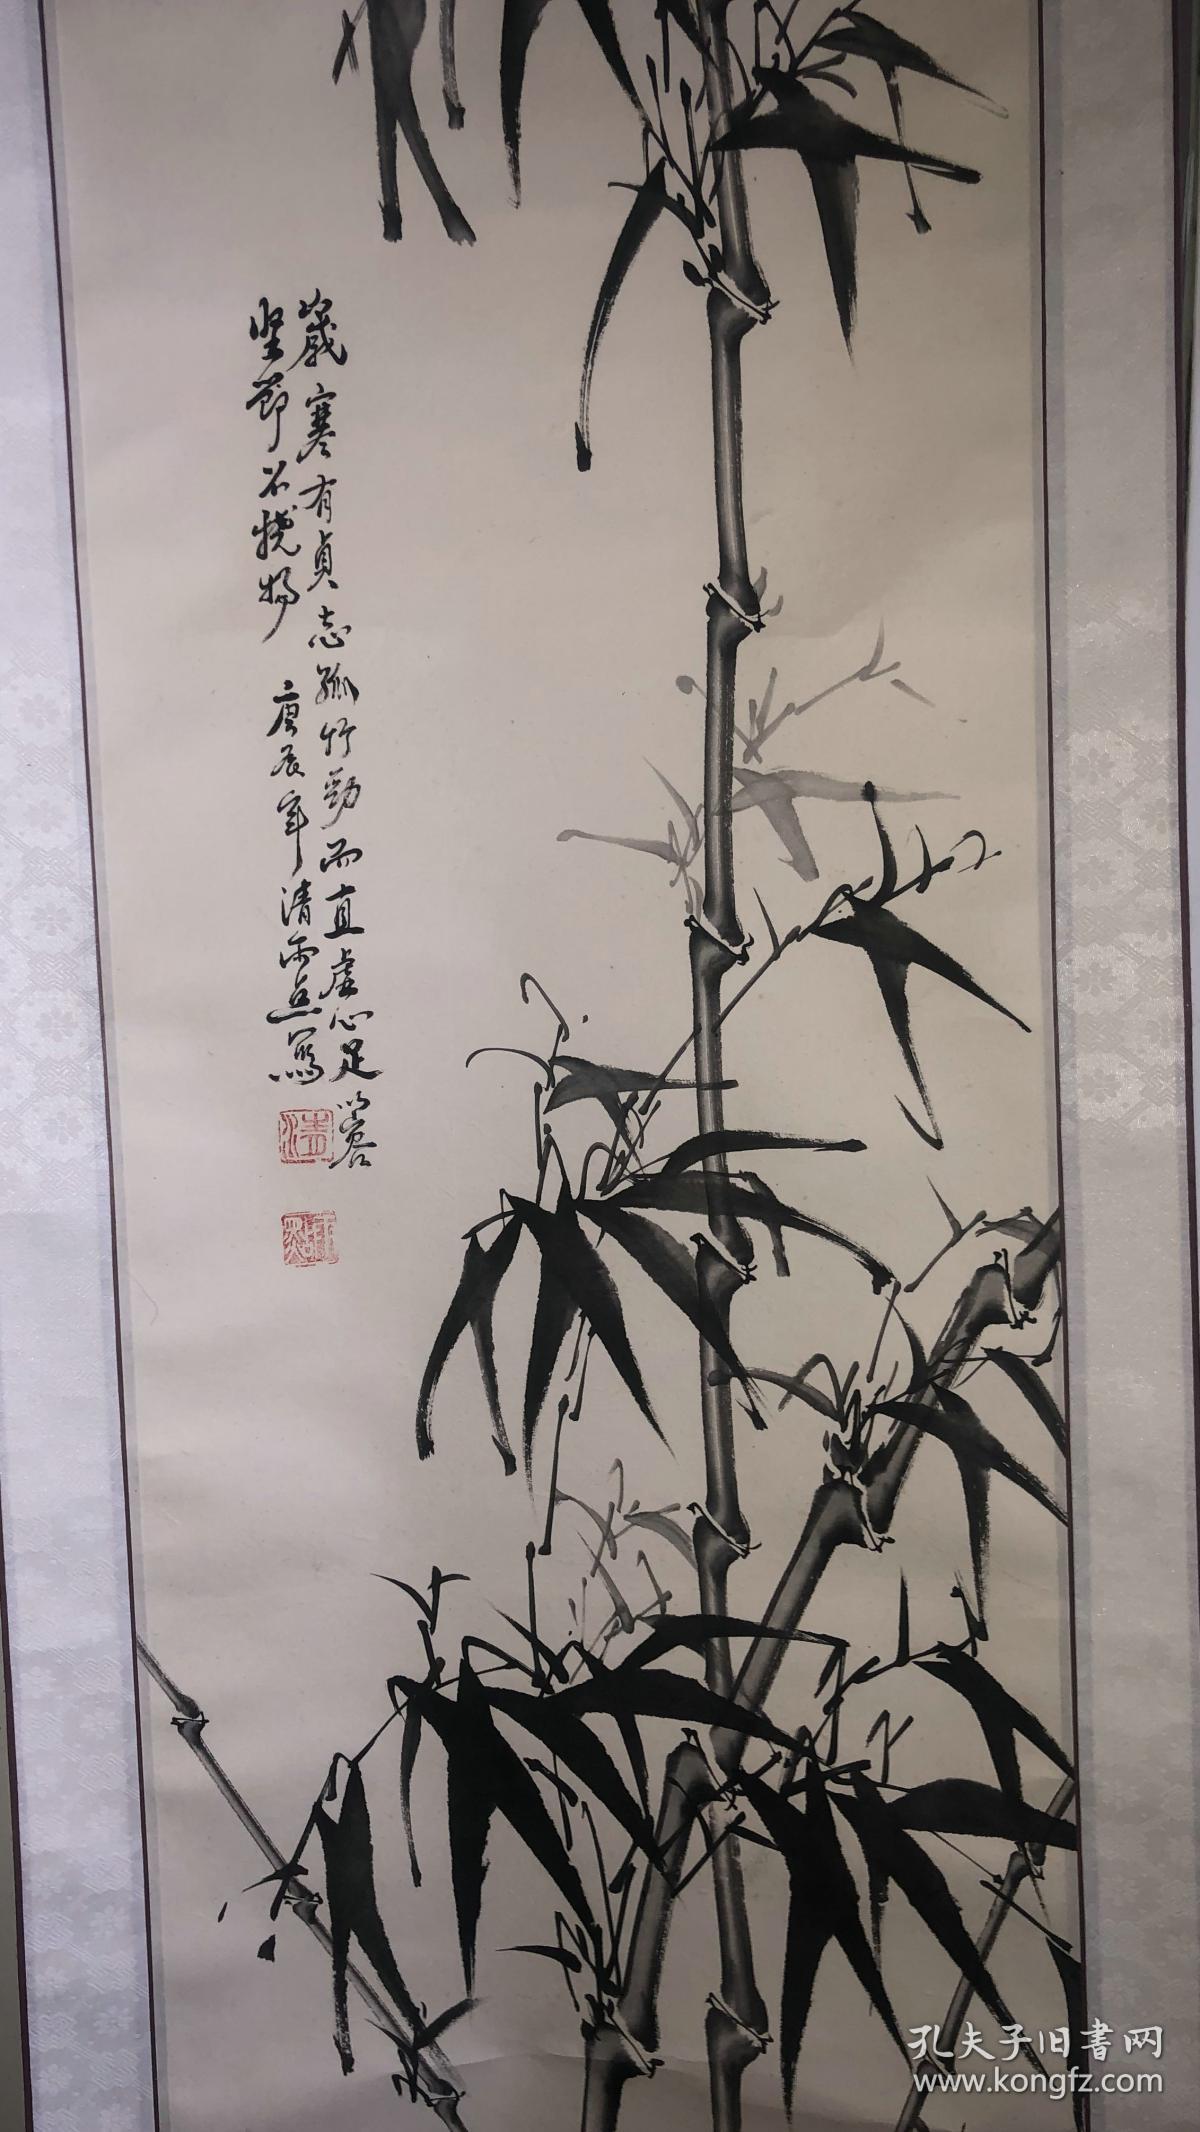 歲寒有貞志孤竹勁而直虛心足以容
坚節不撓物
庚辰年清雨点寫
孔夫子旧書网
www.kongfz.com